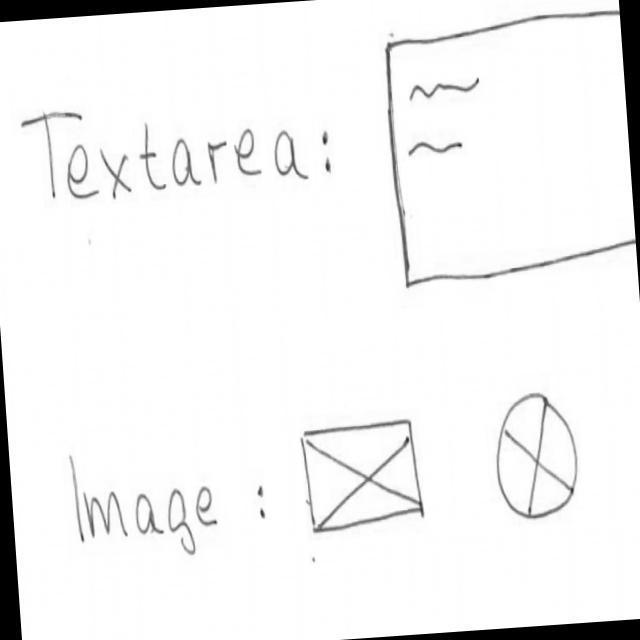 Textarea:
Image :